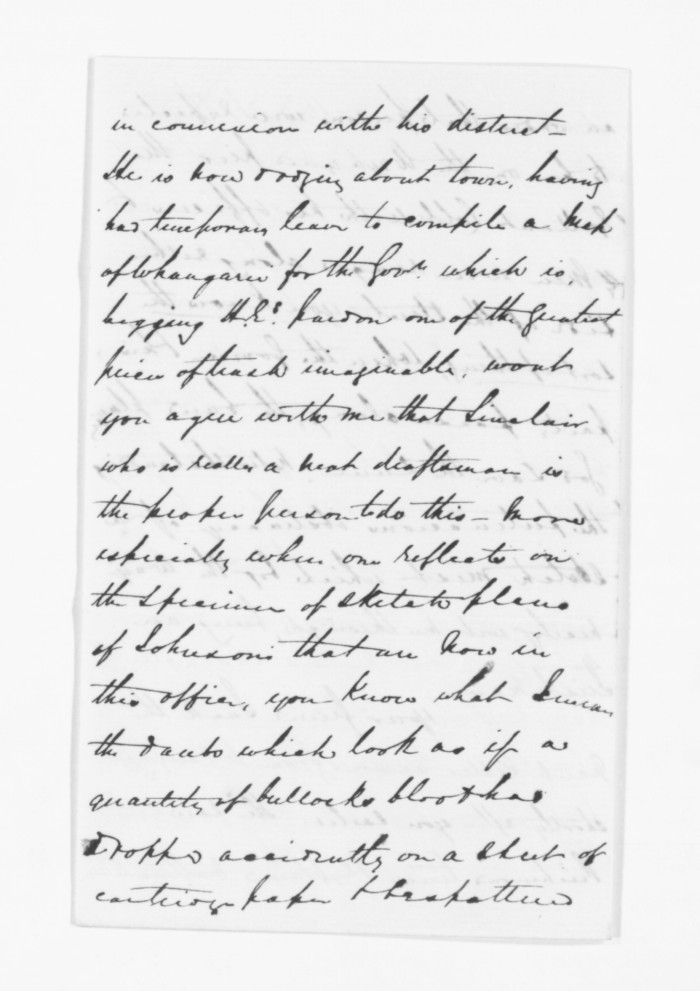 in connexion with his district –
He is now dodging about town, having
had temporary leave to compile a Map
of Whangarei for the Govr. which is,
begging H.E's. pardon one of the greatest
pieces of trash imaginable. wont
you agree with me that Sinclair
who is really a neat draftsman is
the proper person to do this – more
especially when one reflects on
the specimens of sketch plans
of Johnson's that are now in
this office, you know what I mean
the daubs which look as if a
quantity of bullocks blood had
dropped accidently on a sheet of
cartridge paper & bespattered